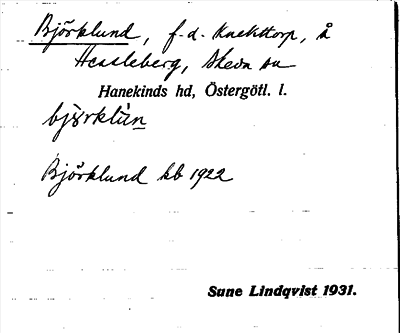 Björklund, f. d. Knekttorp, å
Hassleberg, Skeda sn
Hanekinds hd, Östergötl. l.
björklún
Björklund kb 1922
Sune Lindqvist 1931.